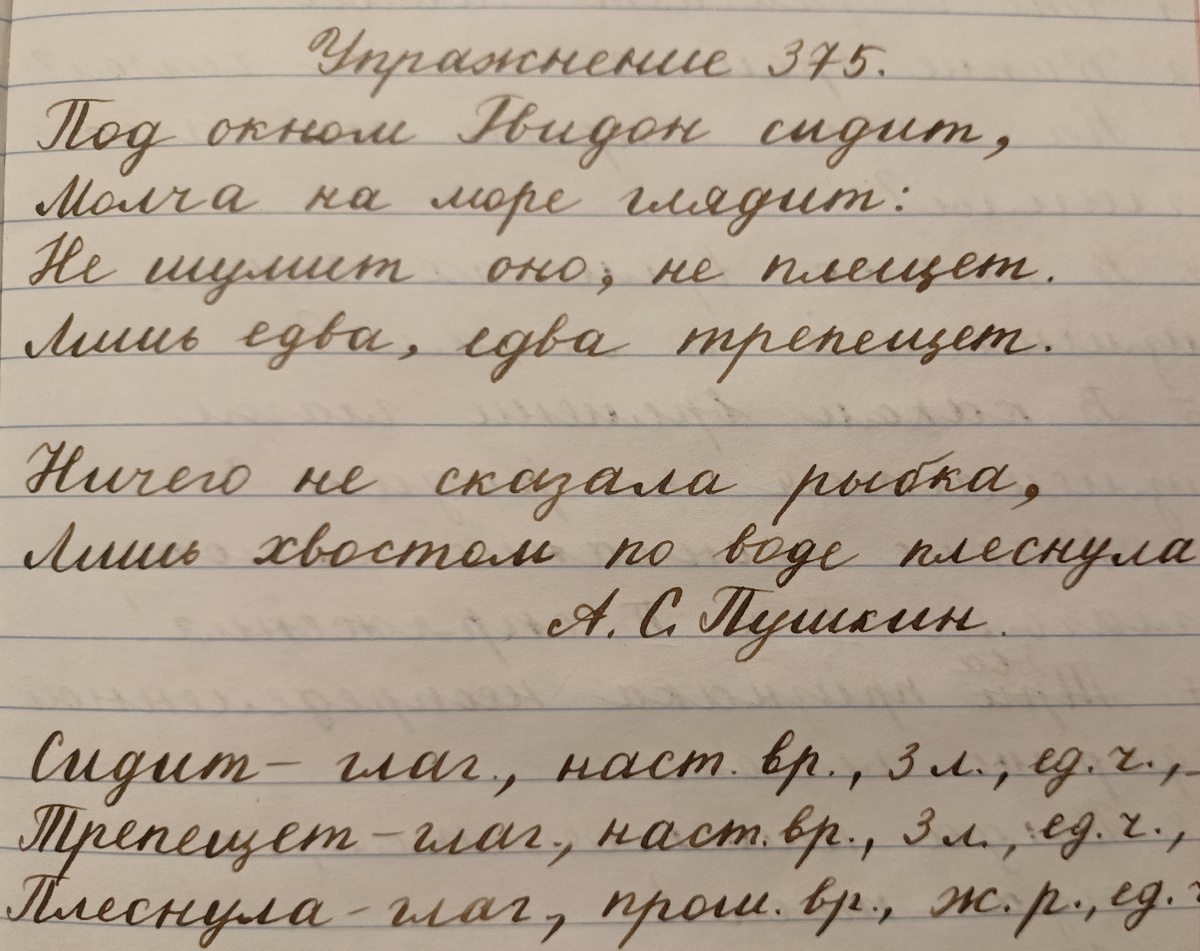 Упражнение 375.
Под окном Гвидон сидит,
Молча на море глядит:
Не шумит оно, не плещет.
Лишь едва, едва трепещет.
Ничего не сказала рыбка,
Лишь хвостом по воде плеснула
А. С. Пушкин.
Сидит – глаг., наст. вр., 3 л., ед. ч.,
Трепещет – глаг., наст. вр., 3 л., ед. ч.,
Плеснула – глаг., прош. вр., ж. р., ед. ч